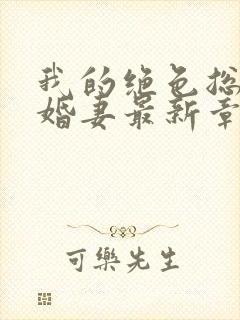 我的绝色总
婚妻最新章
可樂先生